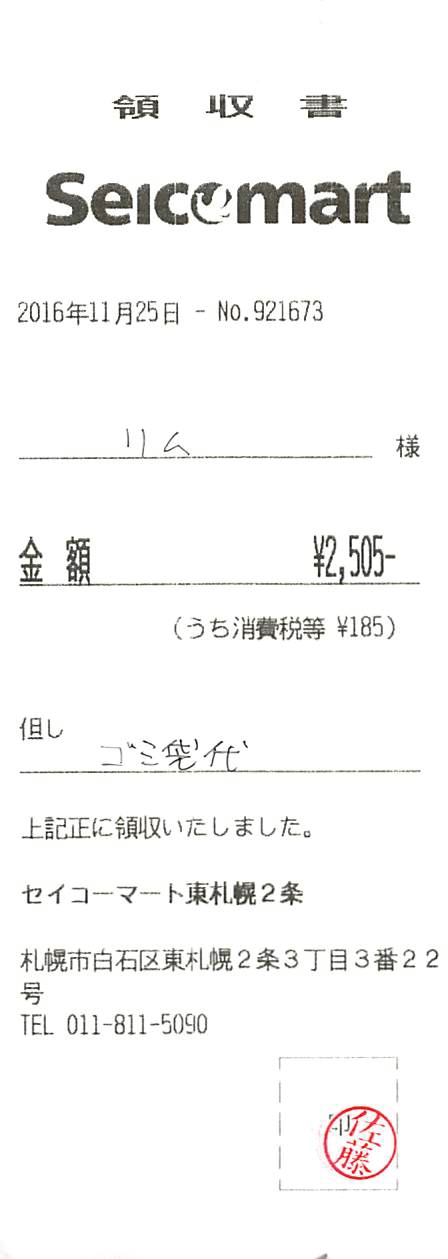 領収書
Seicomart
2016年11月25日 - No.921673
リム 様
金額 ¥2,505-
(うち消費税等 ¥185)
但し
ゴミ袋代
上記正に領収いたしました。
セイコーマート東札幌2条
札幌市白石区東札幌2条3丁目3番22
号
TEL 011-811-5090
印
佐藤